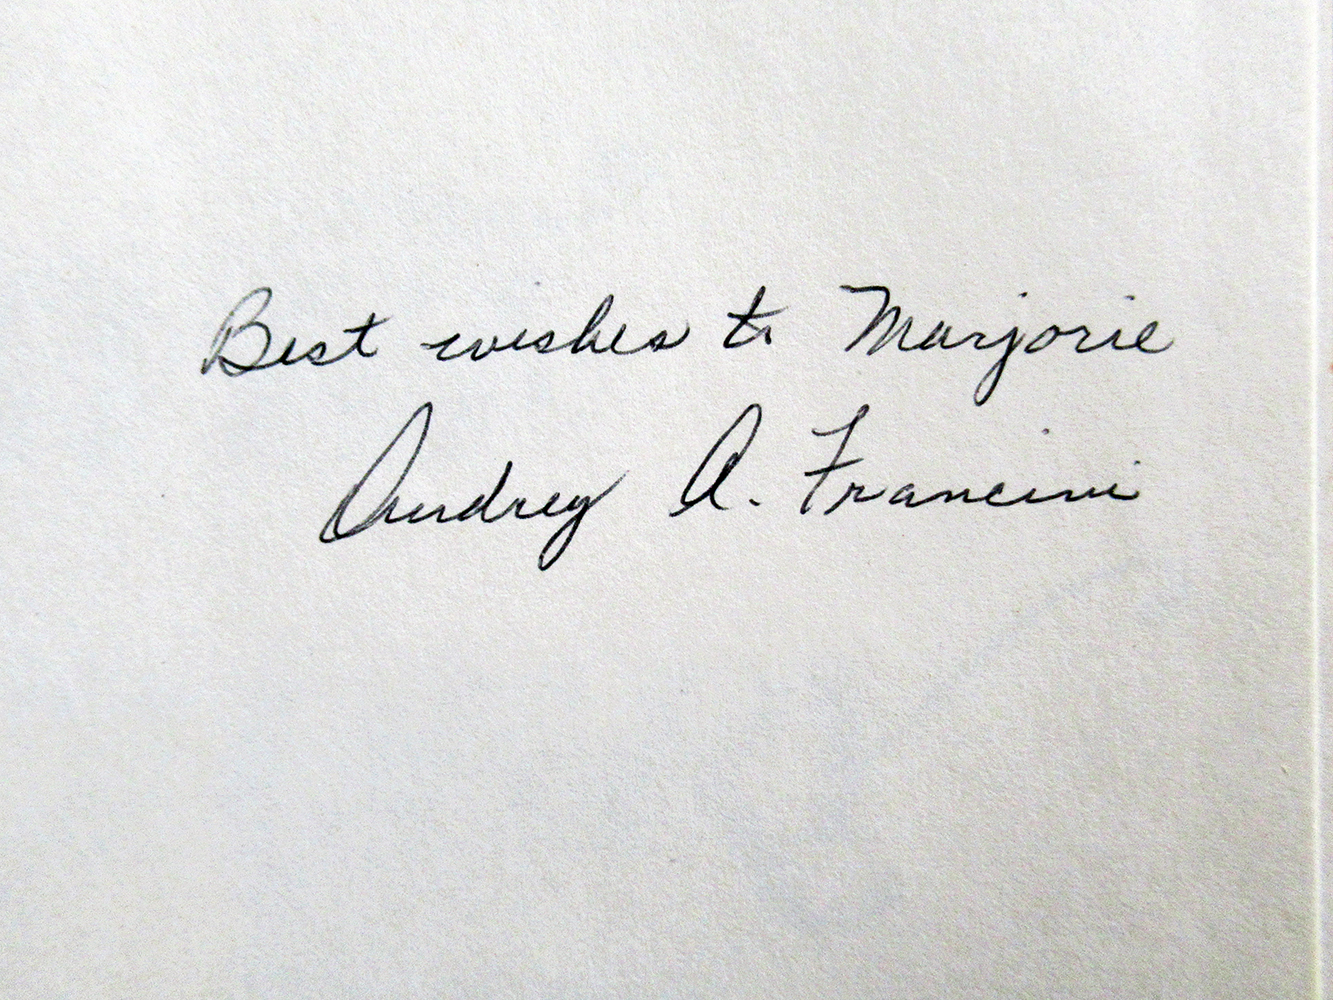 Best wishes to Marjorie
Audrey A. Francini